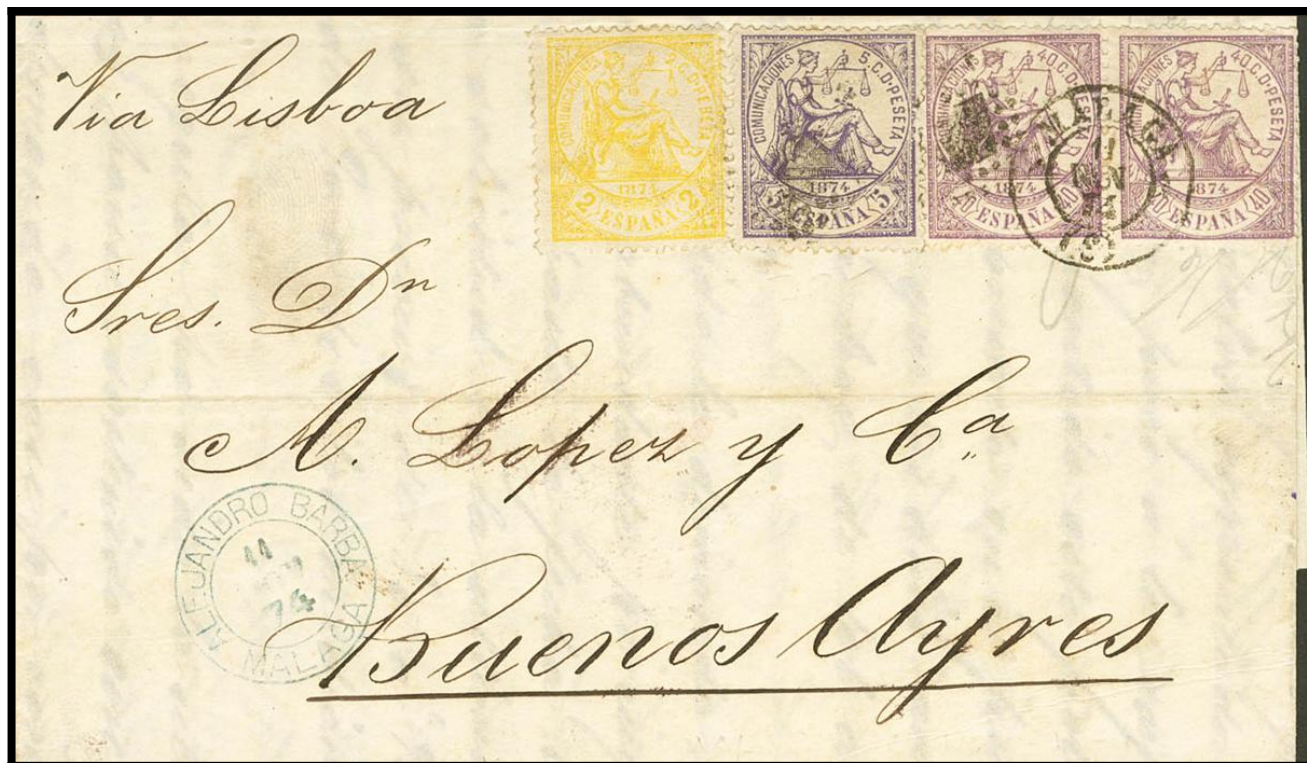 Via Lisboa
COMUNICACIONES 2 C. DE PESETA
1874
2 ESPAÑA 2
COMUNICACIONES 5 C. DE PESETA
1874
5 ESPAÑA 5
COMUNICACIONES 40 C. DE PESETA
1874
40 ESPAÑA 40
COMUNICACIONES 40 C. DE PESETA
1874
40 ESPAÑA 40
MALAGA
11
NOV
74
Sres. Dn
M. Lopez y Ca
ALEJANDRO BARBA
11
74
MALAGA
Buenos Ayres